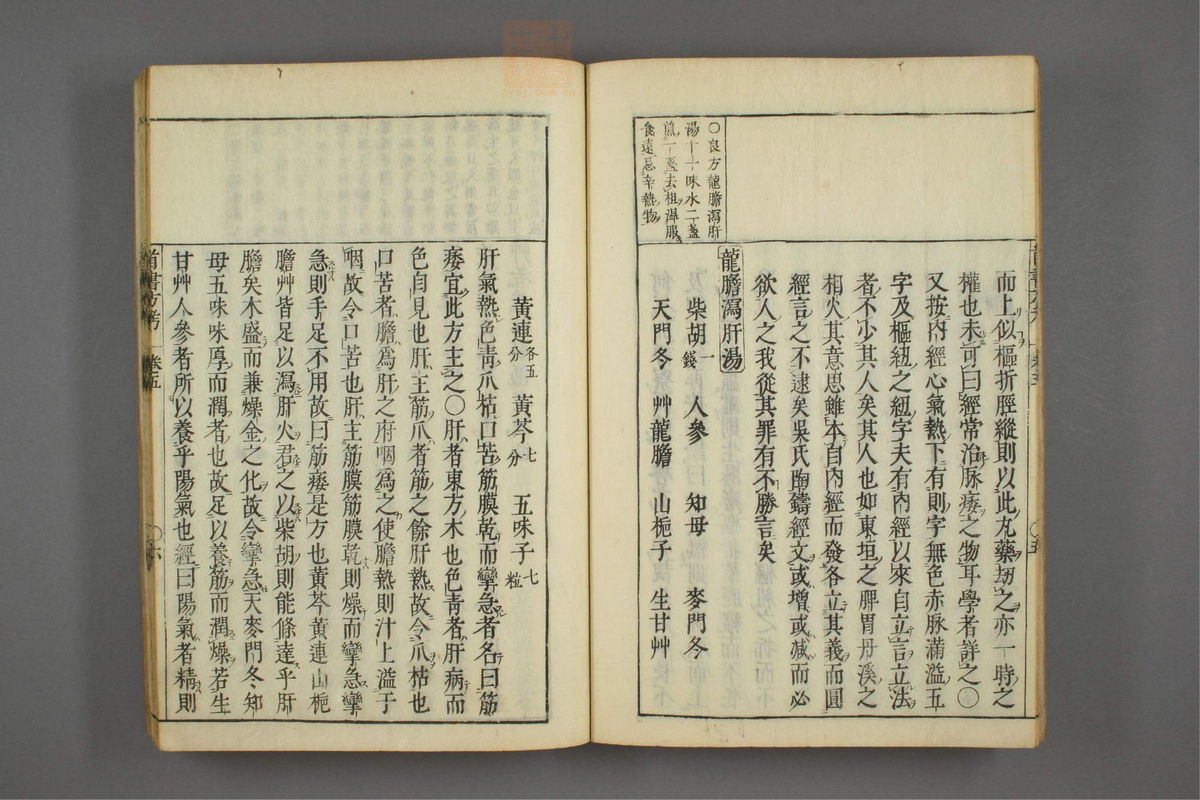 ○良方龍膽瀉肝
湯十一味水二盞
煎一盞去柤溫服
食遠忌辛熱物
而上似樞折脛縱則以此丸藥劫之亦一時之
權也未可曰經常治脉痿之物耳學者詳之○
又按內經心氣熱下有則字無色赤脉滿溢五
字及樞紐之紐字夫有內經以來自立言立法
者不少其人矣其人也如東垣之脾胃丹溪之
相火其意思雖本自內經而發各立其義而圓
經言之不逮矣吳氏陶鑄經文或增或減而必
欲人之我從其罪有不勝言矣
龍膽瀉肝湯
柴胡一錢 人參 知母 麥門冬
天門冬 艸龍膽 山梔子 生甘艸
黃連各五分 黃芩七分 五味子七粒
肝氣熱色靑爪枯口苦筋膜乾而攣急者名曰筋
痿宜此方主之○肝者東方木也色靑者肝病而
色自見也肝主筋爪者筋之餘肝熱故令爪枯也
口苦者膽爲肝之府咽爲之使膽熱則汁上溢于
咽故令口苦也肝主筋膜筋膜乾則燥而攣急攣
急則手足不用故曰筋痿是方也黃芩黃連山梔
膽艸皆足以瀉肝火君之以柴胡則能條達乎肝
膽矣木盛而兼燥金之化故令攣急天麥門冬知
母五味味厚而潤者也故足以養筋而潤燥若生
甘艸人參者所以養乎陽氣也經曰陽氣者精則
首書方考
卷五
○六